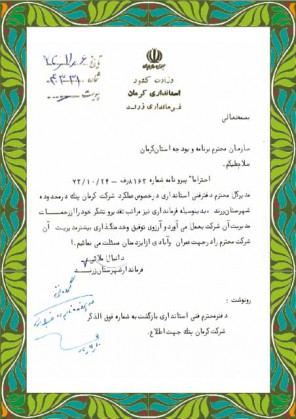 تاریخ
شماره
پیوست
وزارت کشور
استانداری کرمان
فرمانداری زرند
بسمه تعالی
سازمان محترم برنامه و بودجه استان کرمان
سلام علیکم
احتراما" پیرو نامه شماره ۸۱۶۲/ف - ۷۲/۱۰/۲۴
مدیرکل محترم دفترفنی استانداری در خصوص عملکرد شرکت کرمان پتک در محدوده
شهرستان زرند بدینوسیله فرمانداری نیز مراتب تقدیر و تشکر خود را از زحمات
مدیریت آن شرکت بعمل می آورد و آرزوی توفیق و خدمتگذاری بیشتر مدیریت آن
شرکت محترم را در جهت عمران وآبادی از ایزد منان مسئلت می نمائیم.
دانیال ملائی
فرماندار شهرستان زرند
رونوشت :
دفتر محترم فنی استانداری بازگشت به شماره فوق الذکر
شرکت کرمان پتک جهت اطلاع.